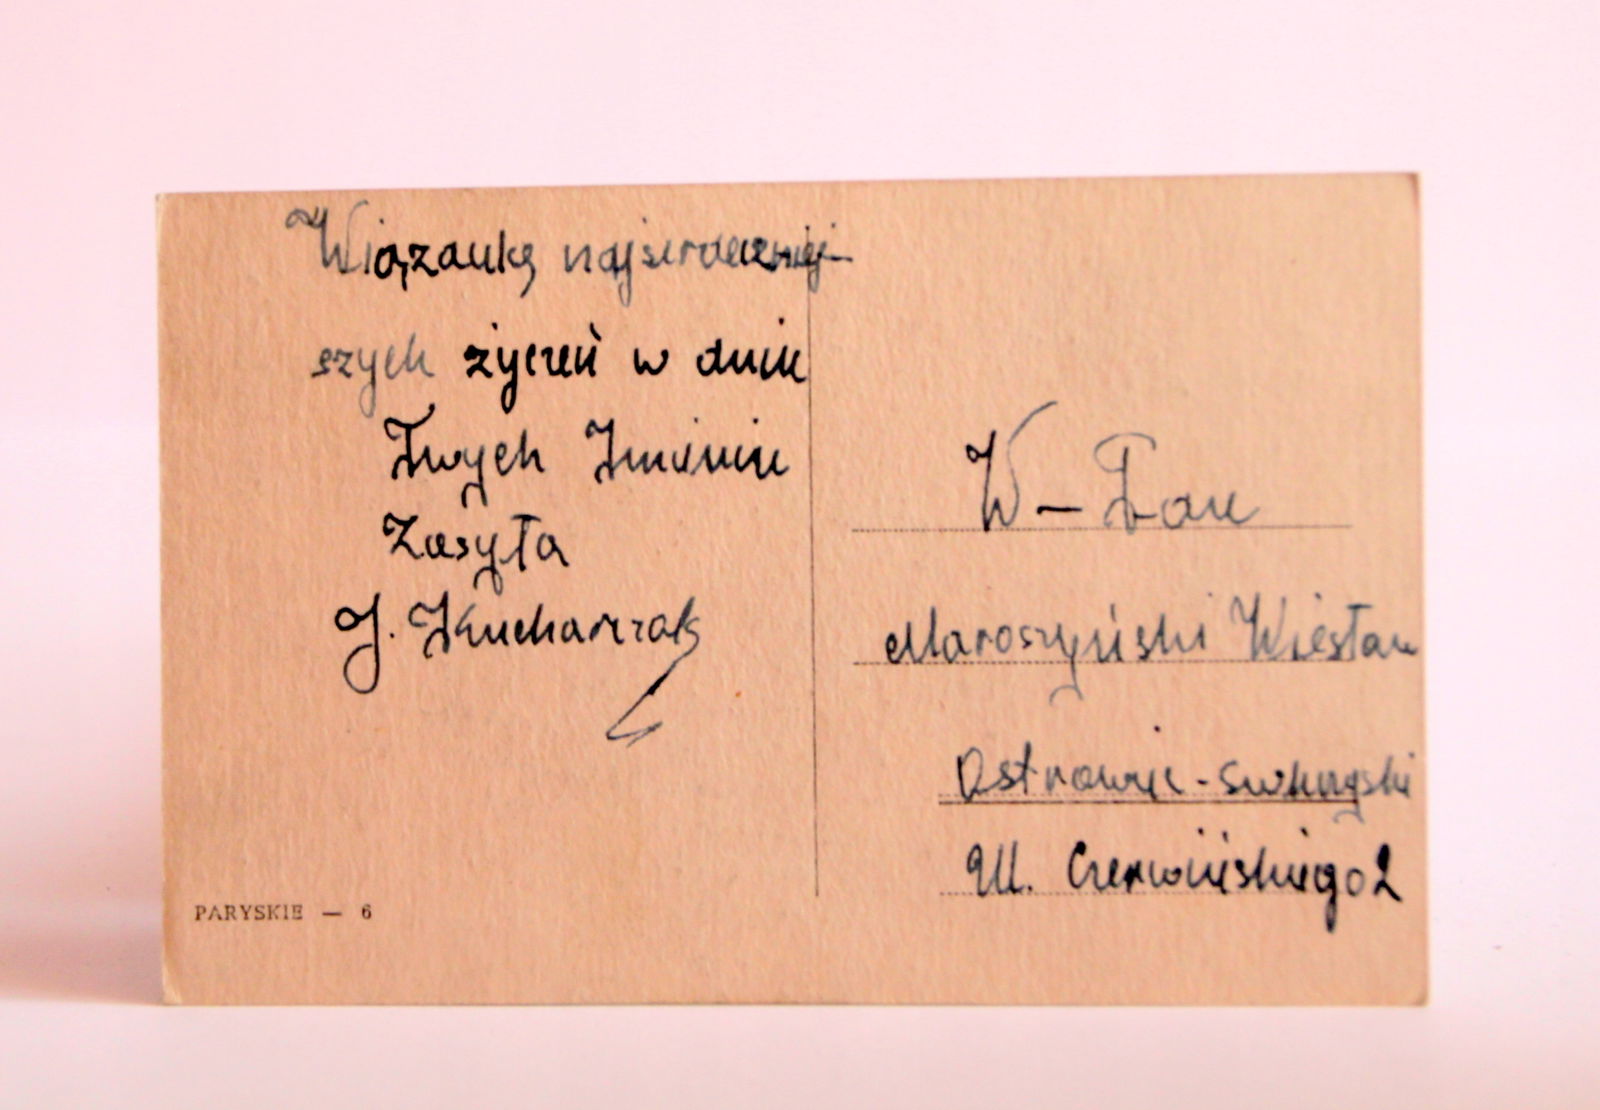 Wiązankę najserdeczniej-
szych życzeń w dniu
Twych Imienin
Zasyła
J. Kucharzak
W-Pan
Maroszyński Wiesław
Ostrowiec-Świ
Ul. Czerwińskiego 2
PARYSKIE — 6